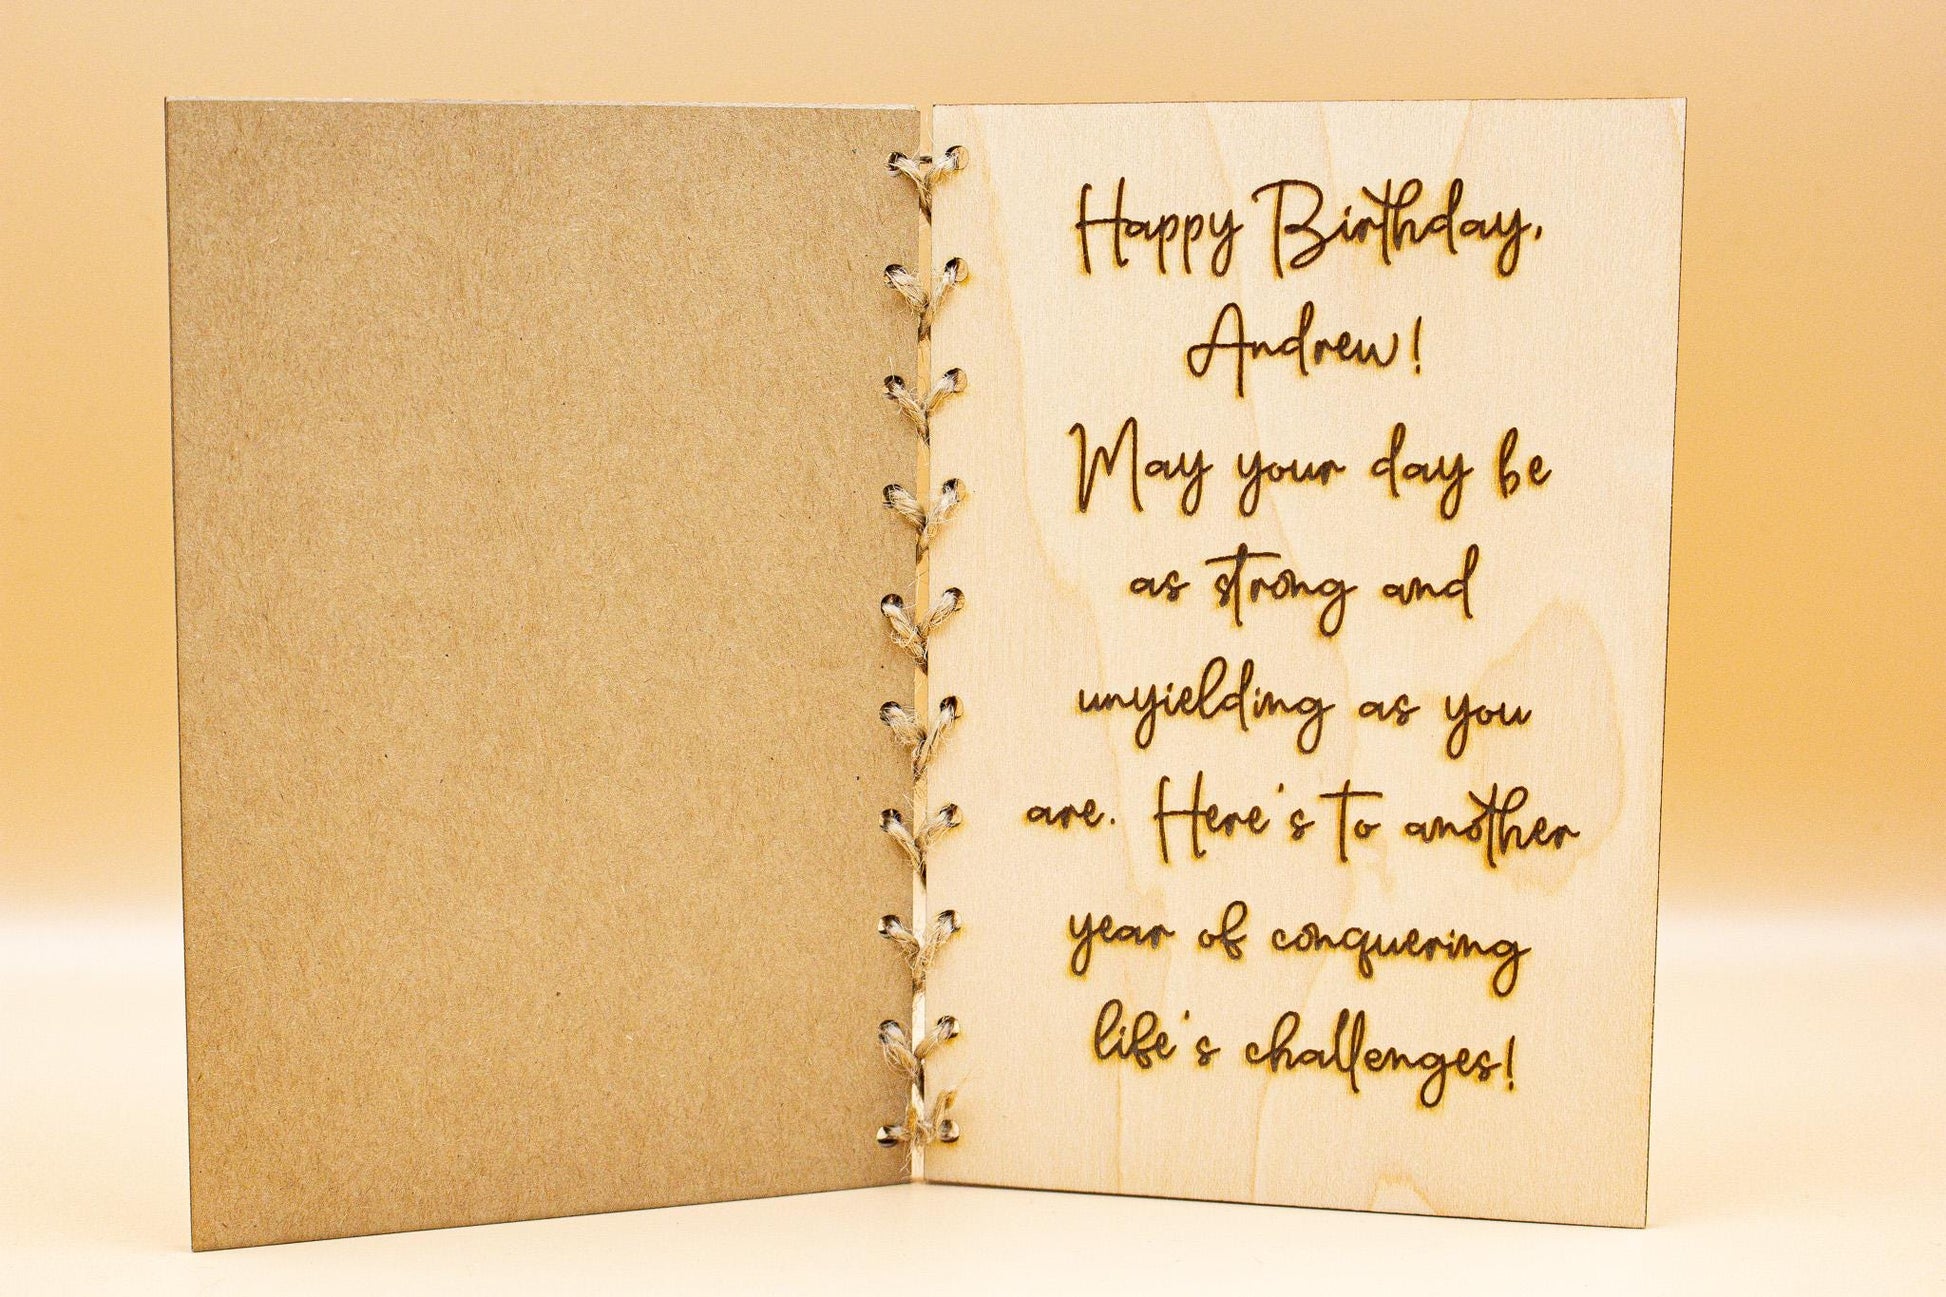 Happy Birthday,
Andrew!
May your day be
as strong and
unyielding as you
are. Here's to another
year of conquering
life's challenges!